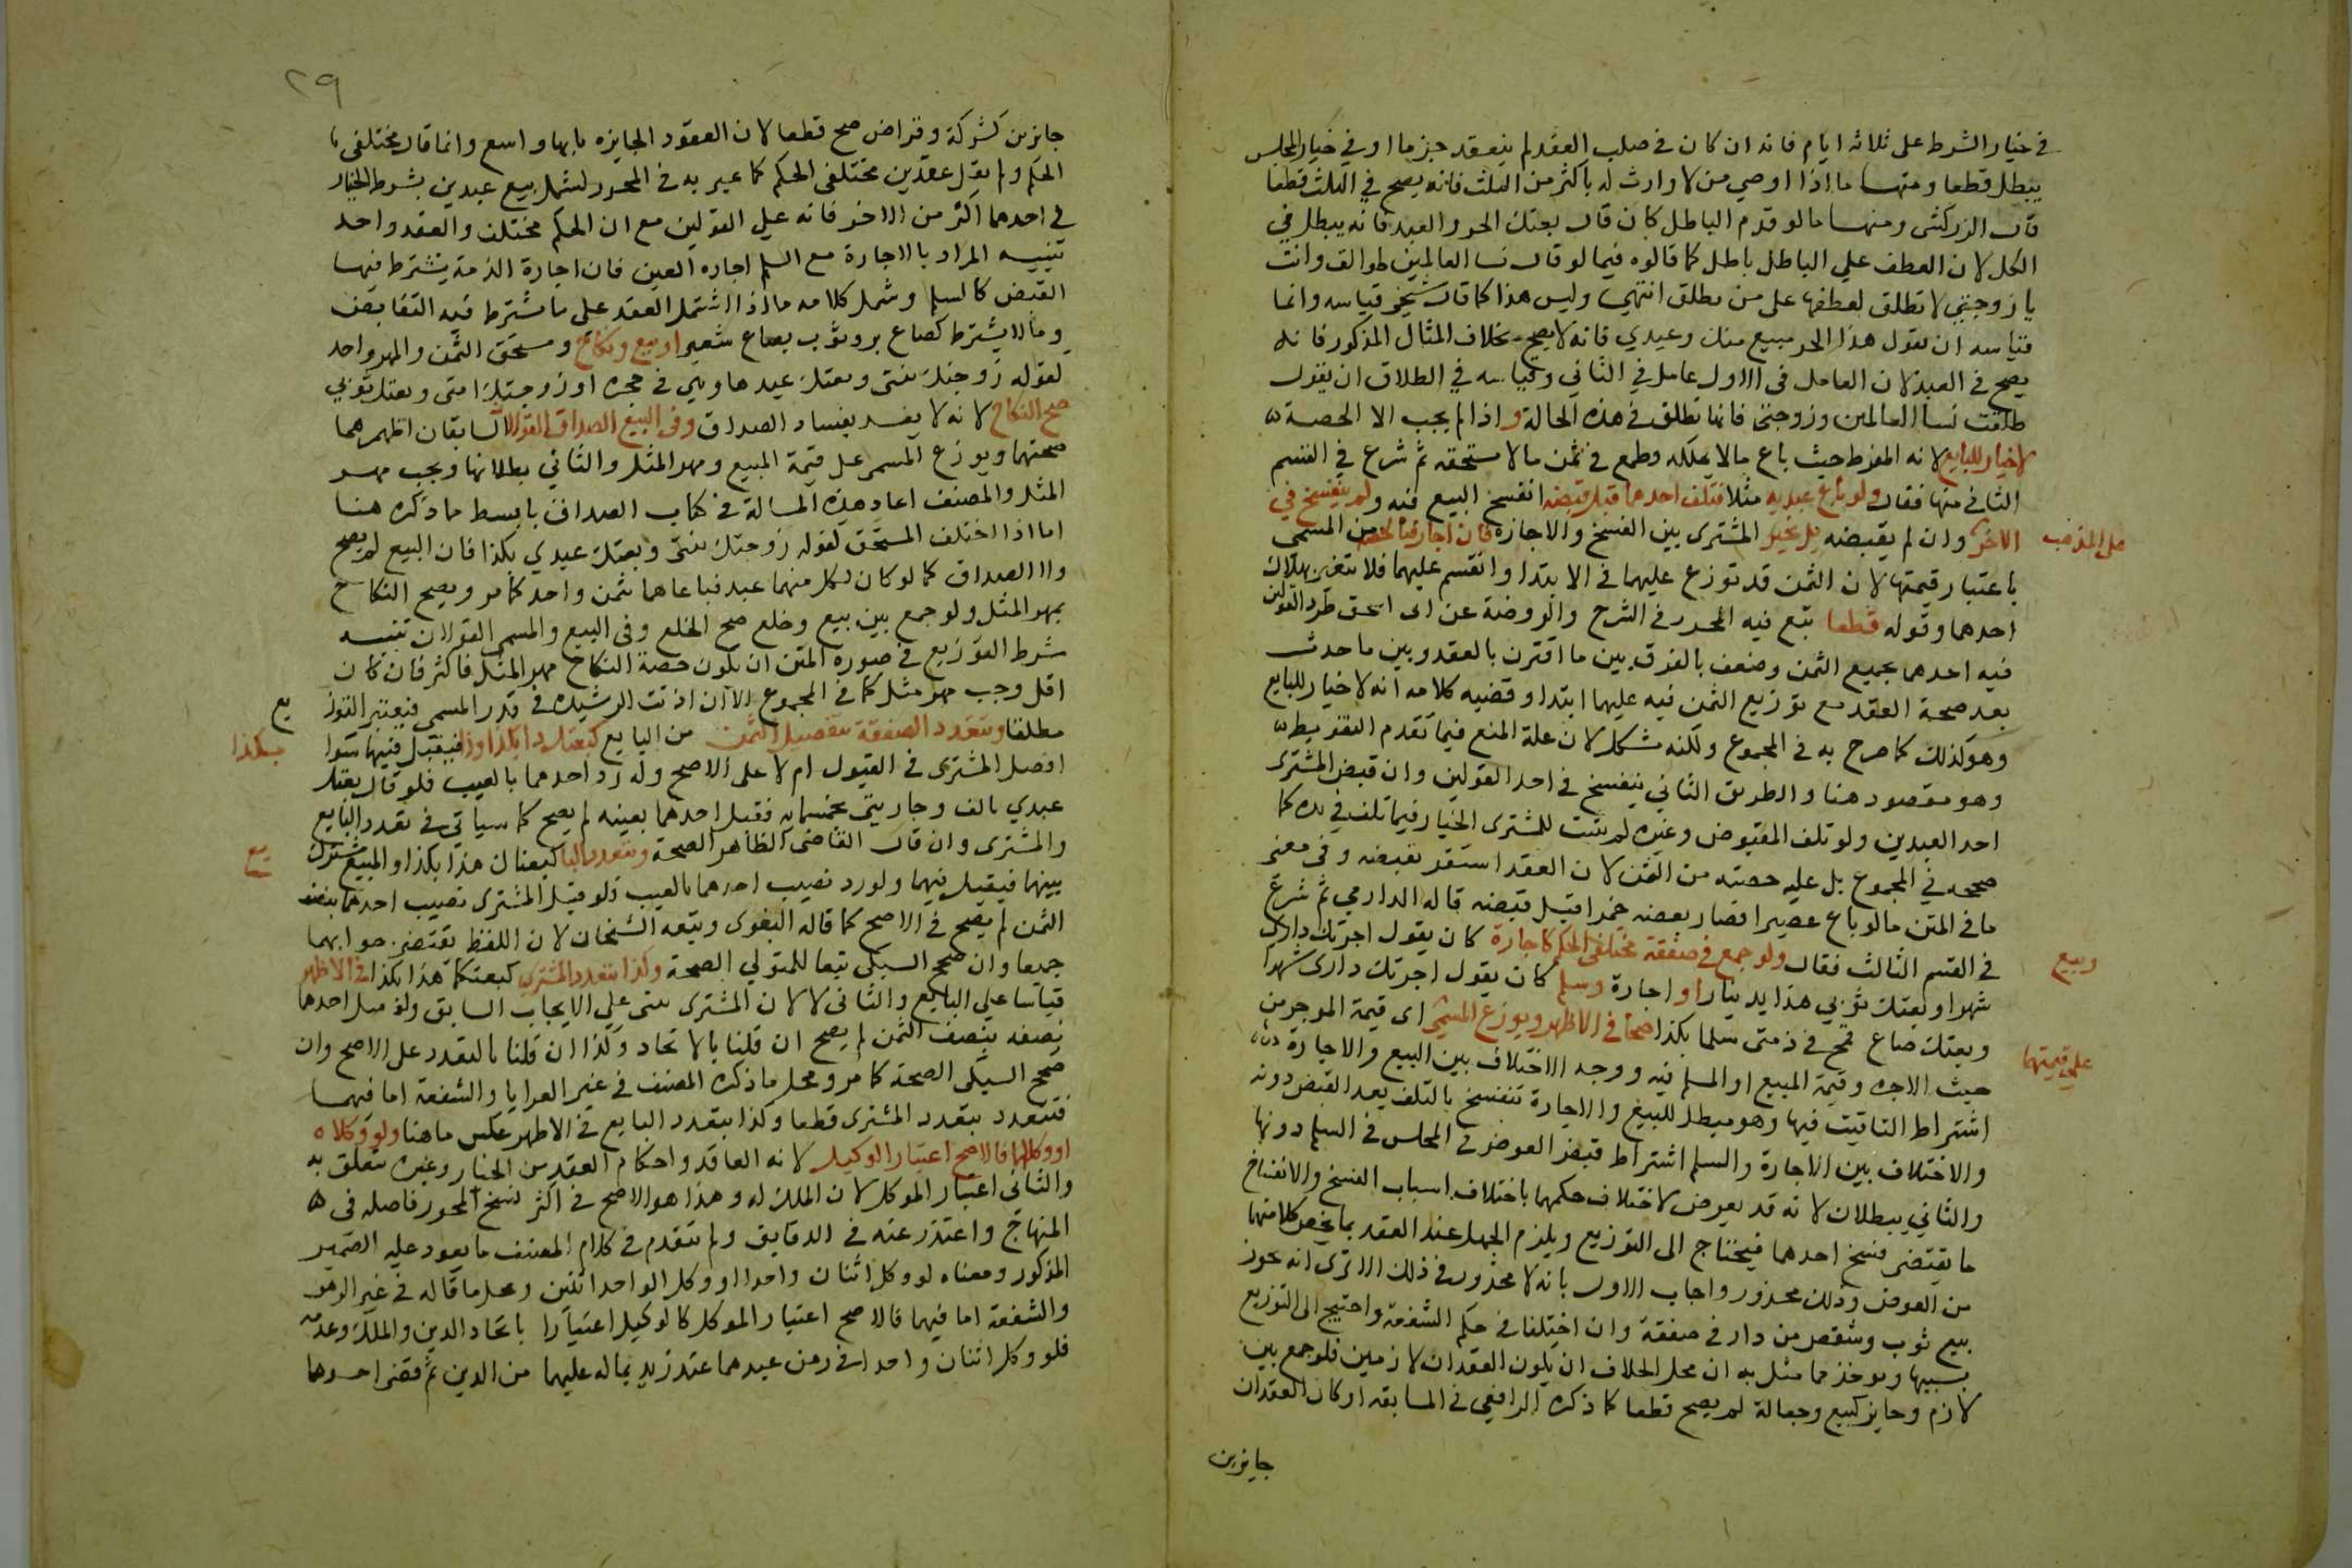 في خيار الشرط على ثلاثة ايام فانه ان كان في صلب العقد لم ينعقد جزما او في خيار المجلس
يبطل قطعا ومنها ما اذا اوصي من لا وارث له باكثر من الثلث فانه يصح في الثلث قطعا
قال الزركشي ومنها ما لو قدم الباطل كان قال بعتك الحر والعبد فانه يبطل في
الكل لان العطف علي الباطل باطل كما قالوه فيما لو قال نسا العالمين طوالق وانت
يا زوجتي لا تطلق لعطفها على من لم تطلق انتهى وليس هذا كما قال شيخي قياسه وانما
قياسه ان يقول هذا الحر مبيع منك وعبدي فانه لا يصح بخلاف المثال المذكور فانه
يصح في العبد لان العامل في الاول عامل في الثاني وقياسه في الطلاق ان يقول
طلقت نسا العالمين وزوجتي فانها تطلق في هذه الحالة واذا لم يجب الا الحصة
لا خيار للبايع لانه المفرط حيث باع ما لا يملكه وطمع في ثمن ما لا يستحقه ثم شرع في القسم
الثاني منها فقال ولو باع عبديه مثلا فتلف احدهما قبل قبضه انفسخ البيع فيه ولم ينفسخ في
الاخر وان لم يقبضه بل يتخير المشترى بين الفسخ والاجازة فان اجاز فبالحصة من المسمى
على المذهب
باعتبار قيمتها لان الثمن قد توزع عليهما في الابتدا وانقسم عليهما فلا يتغير بهلاك
احدهما وقوله قطعا تبع فيه المحرر وفي الشرح والروضة عن ابى اسحق طرد القولين
فيه احدهما بجميع الثمن وضعف بالفرق بين ما اقترن بالعقد وبين ما حدث
بعد صحة العقد مع توزيع الثمن فيه عليهما ابتدا وقضيه كلامه انه لا خيار للبايع
وهو كذلك كما صرح به في المجموع ولكنه مشكل لان علة المنع فيما تقدم التفريط
وهو مفقود هنا والطريق الثاني ينفسخ في احد القولين وان قبض المشترى
احد العبدين ولو تلف المقبوض وغيره لم يثبت للمشترى الخيار فيما تلف في يده كما
صححه في المجموع بل عليه حصته من الثمن لان العقد استقر بقبضه وفي معنى
ما في المتن ما لو باع عصيرا فصار بعضه خمرا قبل قبضه قاله الدارمي ثم شرع
في القسم الثالث فقال ولو جمع في صفقة مختلفى الحكم كاجارة كان يقول اجرتك داري
وبيع
شهرا وبعتك ثوبي هذا بدينار او اجارة وسلم كان يقول اجرتك داري شهرا
وبعتك صاع قمح في ذمتى سلما بكذا صحا في الاظهر ويوزع المسمى اى قيمة الموجر من
على قيمتهما
حيث الاجره وقيمة المبيع او المسلم فيه ووجه الاختلاف بين البيع والاجارة
اشتراط التاقيت فيها وهو مبطل للبيع والاجارة تنفسخ بالتلف بعد القبض دونه
والاختلاف بين الاجارة والسلم اشتراط قبض العوض في المجلس في السلم دونها
والثاني يبطلان لانه قد يعرض لاختلاف حكمهما باختلاف اسباب الفسخ والانفساخ
ما يقتضى فسخ احدهما فيحتاج الى التوزيع ويلزم الجهل عند العقد بما يخص كلا منهما
من العوض وذلك محذور واجاب الاول بانه لا محذور في ذلك الا ترى انه يجوز
بيع ثوب وشقص من دار في صفقة وان اختلفا في حكم الشفعة واحتيج الى التوزيع
بسببها ويوخذ مما مثل به ان محل الخلاف ان يكون العقدان لازمين فلو جمع بين
لازم وجايز كبيع وجعالة لم يصح قطعا كما ذكره الرافعي في المسابقه او كان العقدان
جايزين
٢٩
جايزين كشركة وقراض صح قطعا لان العقود الجايزه بابها واسع وانما قال مختلفى
الحكم ولم يقل عقدين مختلفى الحكم كما عبر به في المحرر ليشمل بيع عبدين بشرط الخيار
في احدهما اكثر من الاخر فانه علي القولين مع ان الحكم مختلف والعقد واحد
تنبيه المراد بالاجارة مع السلم اجاره العين فان اجارة الذمة يشترط فيها
القبض كالسلم وشمل كلامه ما اذا اشتمل العقد على ما يشترط فيه التقابض
وما لا يشترط كصاع بر وثوب بصاع شعير او بيع ونكاح ومستحق الثمن والمهر واحد
كقوله زوجتك بنتى وبعتك عبدها وهي في حجره او زوجتك امتى وبعتك ثوبي
صح النكاح لانه لا يفسد بفساد الصداق وفي البيع والصداق القولان السابقان اظهرهما
صحتهما ويوزع المسمى على قيمة المبيع ومهر المثل والثاني بطلانها ويجب مهر
المثل والمصنف اعاد هذه المسالة في كتاب الصداق بابسط مما ذكره هنا
اما اذا اختلف المستحق كقوله زوجتك بنتى وبعتك عبدي بكذا فان البيع لم يصح
ولا الصداق كما لو كان لكل منهما عبد فباعاهما بثمن واحد كما مر ويصح النكاح
بمهر المثل ولو جمع بين بيع وخلع صح الخلع وفي البيع والمسمى القولان تنبيه
شرط التوزيع في صورة المتن ان تكون حصة النكاح مهر المثل فاكثر فان كان
اقل وجب مهر مثل كما في المجموع الا ان اذنت الرشيدة في قدر المسمى فيعتبر التوز
يع
مطلقا وتتعدد الصفقة بتفصيل الثمن من البايع كبعتك ذا بكذا وذا فيقبل فيهما سوا
بكذا
افصل المشترى في القبول ام لا على الاصح وله رد احدهما بالعيب فلو قال بعتك
عبدي بالف وجاريتى بخمسمايه فقبل احدهما بعينه لم يصح كما سياتي في تعدد البايع
والمشترى وان قال القاضى الظاهر الصحة وبتعدد البا كبعناك هذا بكذا والمبيع مشترك
يع
بينهما فيقبل فيهما ولو رد نصيب احدهما بالعيب ولو قبل المشترى نصيب احدهما بنصف
الثمن لم يصح في الاصح كما قاله البغوى وتبعه الشيخان لان اللفظ يقتضى جوابهما
جميعا وان صحح السبكى تبعا للمتولي الصحة وكذا بتعدد المشتري كبعتكما هذا بكذا في الاظهر
قياسا علي البايع والثانى لا لان المشترى يبنى علي الايجاب السابق ولو قبل احدهما
نصفه بنصف الثمن لم يصح ان قلنا بالاتحاد وكذا ان قلنا بالتعدد على الاصح وان
صحح السبكى الصحة كما مر ومحل ما ذكره المصنف في غير العرايا والشفعة اما فيهما
فتتعدد بتعدد المشترى قطعا وكذا بتعدد البايع في الاظهر عكس ما هنا ولو وكلاه
او وكلهما فالاصح اعتبار الوكيل لانه العاقد واحكام العقد من الخيار وغيره تتعلق به
والثانى اعتبار الموكل لان الملك له وهذا هو الاصح في اكثر نسخ المحرر فاصله في
المنهاج واعتذر عنه في الدقايق ولم يتقدم في كلام المصنف ما يعود عليه الضمير
المذكور ومعناه لو وكل اثنان واحدا او وكل الواحد اثنين ومحل ما قاله في غير الرهن
والشفعة اما فيهما فالاصح اعتبار الموكل لا الوكيل اعتبارا باتحاد الدين والملك وعدمه
فلو وكل اثنان واحدا في رهن عبدهما عند زيد بماله عليهما من الدين ثم قضى احدهما